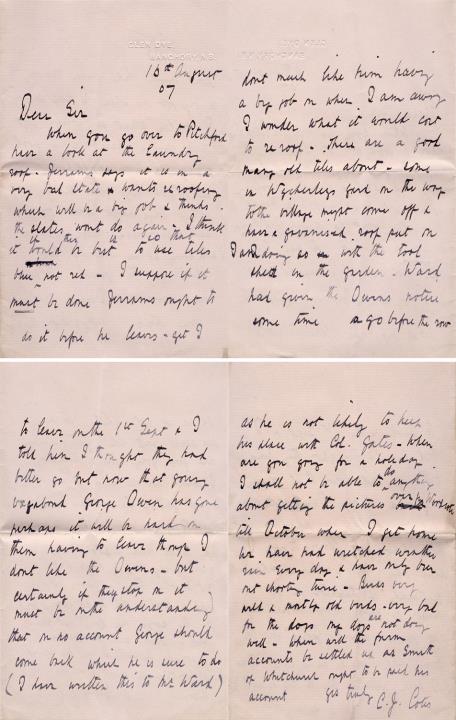 GLEN DYE,
BANCHORY N.B.
13th August
07
Dear Sir
When you go over to Pitchford
have a look at the Laundry
roof - Jerrams says it is in a
very bad state & wants re roofing
which will be a big job & thinks
the slates wont do again - I think
if this is so that
it would be best to use tiles
blue not red - I suppose if it
must be done Jerrams ought to
do it before he leaves - yet I
dont much like him having
a big job on when I am away
I wonder what it would cost
to re roof - there are a good
many old tiles about - some
in Wycherleys yard on the way
to the village might come off &
have a galvanised roof put on
I am doing so with the tool
shed in the garden - Ward
had given the Owens notice
some time ago before the row
to leave on the 1st Sept & I
told him I thought they had
better go but now that young
vagabond George Owen has gone
perhaps it will be hard on
them having to leave though I
dont like the Owens - but
certainly if they stop on it
must be on the understanding
that on no account George should
come back which he is sure to do
(I have written this to Mr Ward)
as he is not likely to keep
his place with Col. Gates - When
are you going for a holiday
I shall not be able to do anything
about getting the pictures over
till October when I get home
We have had wretched weather
rain every day & have only been
out shooting twice - Birds very
wild & mostly old birds - very bad
for the dogs my dogs are not doing
well - When will the farm
accounts be settled up as Smith
of Whitchurch ought to be paid his
account
yrs truly
C. J. Cotes